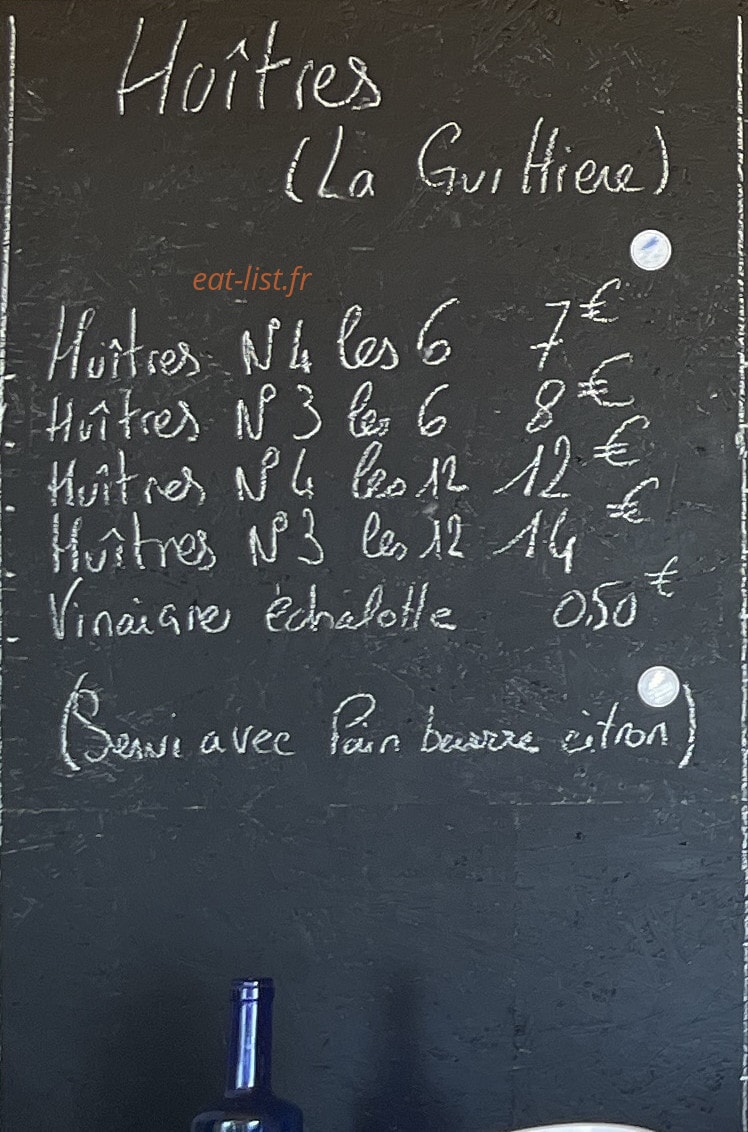 Huîtres
(La Guittiere)
eat-list.fr
Huîtres N°4 les 6 7€
Huîtres N°3 les 6 8€
Huîtres N°4 les 12 12€
Huîtres N°3 les 12 14€
Vinaigre échalotte 0,50€
(Servi avec Pain beurre citron)